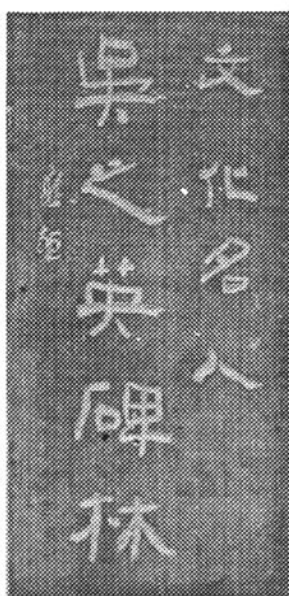 文化名人
吴之英碑林